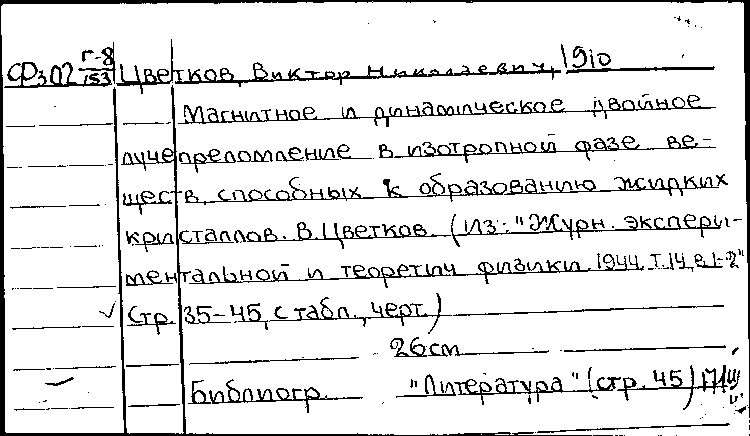 ФЗ02 Г-8/153 Цветков, Виктор Николаевич, 1910
Магнитное и динамическое двойное
лучепреломление в изотропной фазе ве-
ществ, способных к образованию жидких
кристаллов. В. Цветков. (Из: "Журн. экспери-
ментальной и теоретич. физики. 1944, Т. 14, в. 1-2"
Стр. 35-45, с табл., черт.)
26 cm
Библиогр. "Литература" (стр. 45)